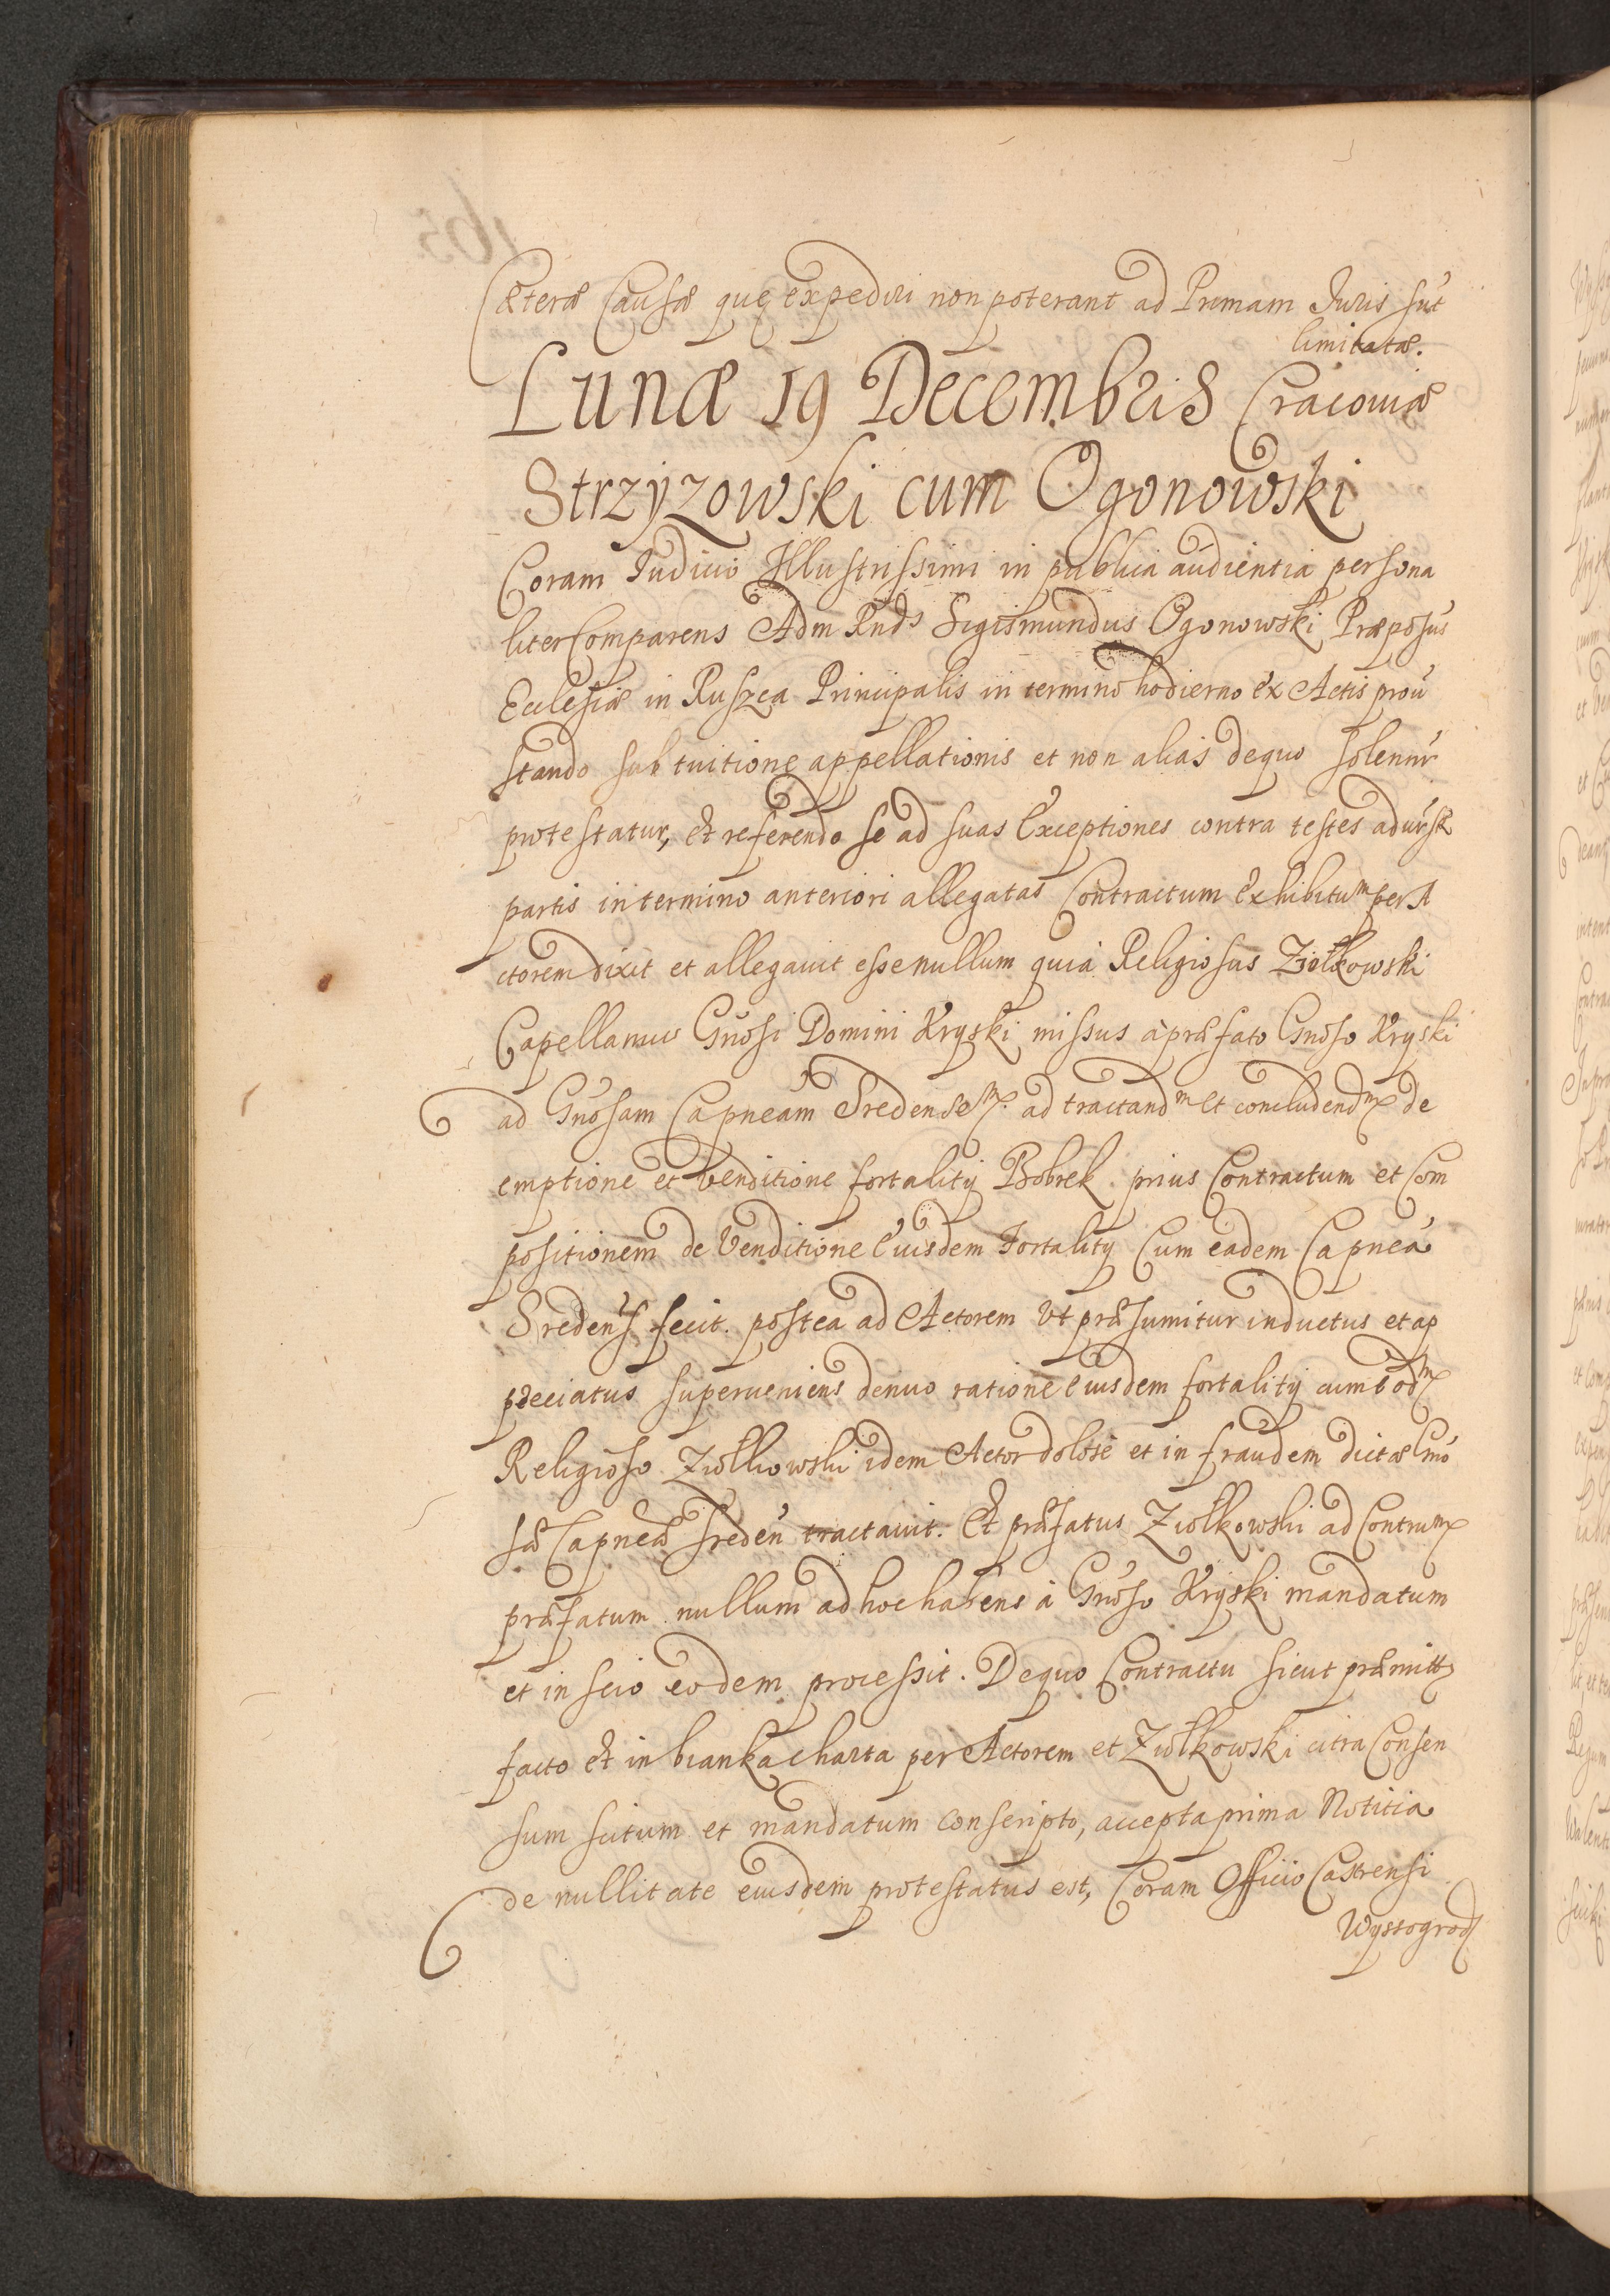 Cæteræ Causæ quę expediri non poterant ad Primam Juris sūt
limitatæ.
Lunæ 19 Decembris Cracoviæ
Strzyzowski cum Ogonowski
Coram Judicio Illustrissimi in publica audientia persona
liter Comparens Adm Rnds Sigismundus Ogonowski Præposus
Ecclesiæ in Ruszca Principalis in termino hodierno ex Actis prou
stando sub tuitione appellationis et non alias dequo solennr
protestatur, et referendo se ad suas Exceptiones contra testes
partis in termino anteriori allegatas Contractum exhibitum per A
ctorem dixit et allegavit esse nullum quia Religiosus Ziołkowski
Capellanus Gnosi Domini Kryski missus à præfato Gnoso Kryski
ad Gnosam Capneam Sredensem ad tractandm et concludendm de
emptione et Venditione fortalitij Bobrek prius Contractum et Com
positionem de Venditione Euisdem Fortalitij Cum eadem Capnea
Sredens fecit. postea ad Actorem Vt præsumitur inductus et ap
preciatus superueniens denuo ratione Euisdem fortalitij cum eodm
Religioso Ziołkowski idem Actor dolose et in fraudem dictæ Gno
sæ Capneæ Sreden tractauit. Et præfatus Ziołkowski ad Contrum
præfatum nullum ad hoc habens à Gnoso Kryski mandatum
et in scio eodem processit. Dequo Contractu sicut præmitt
facto et in bianka charta per Actorem et Ziołkowski citra Consen
sum scitum et mandatum conscripto, accepta prima Notitia
de nullitate eiusdem protestatus est, Coram Officio Castrensi
Wyssogrod